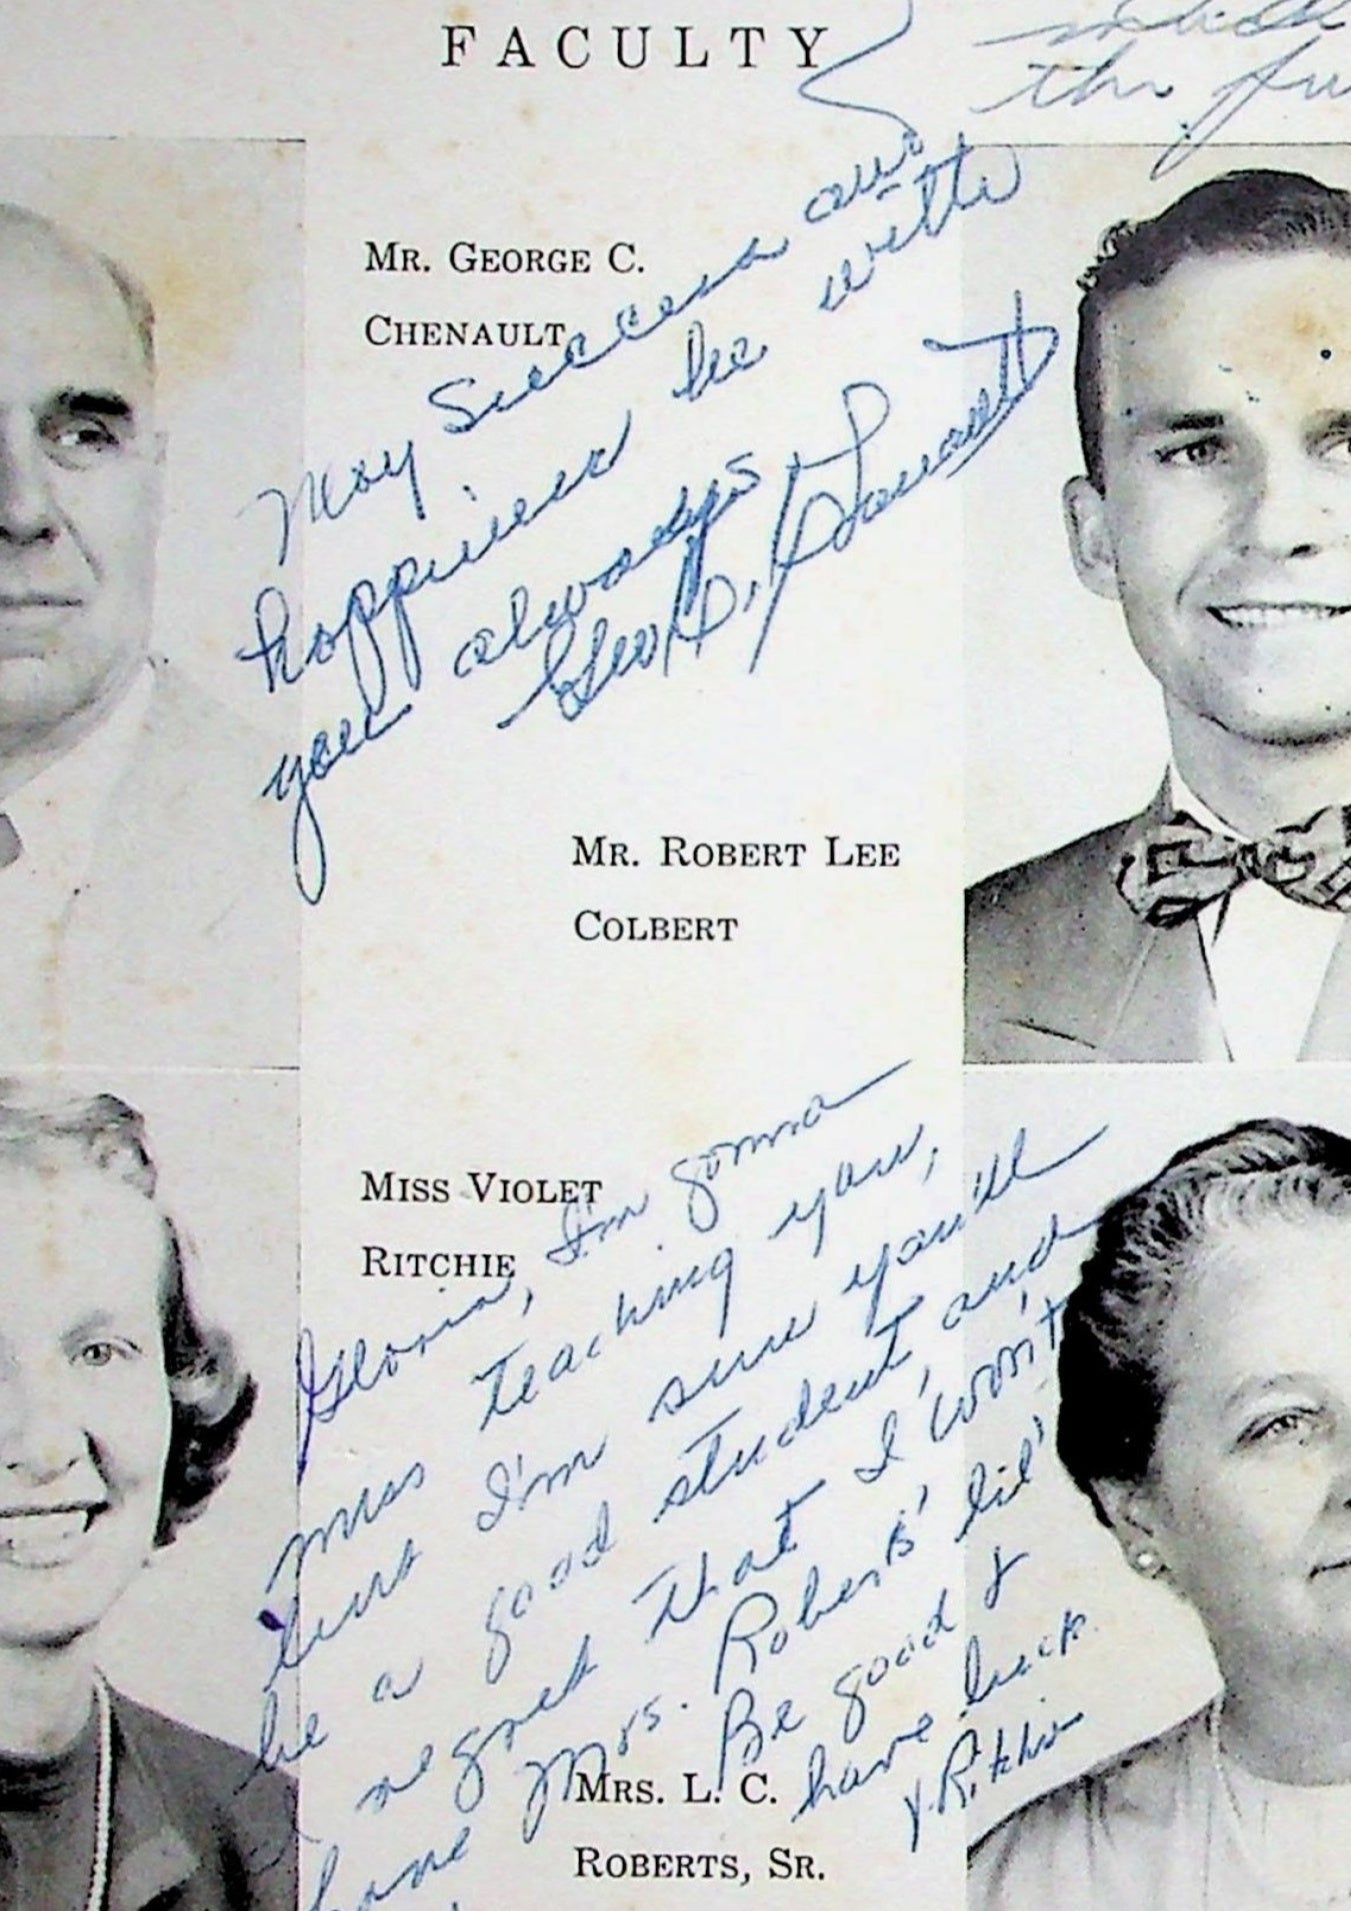 FACULTY
the
MR. GEORGE C.
CHENAULT
May Success and
happiness be with
you always
Geo. C. Chenault
MR. ROBERT LEE
COLBERT
MISS VIOLET
RITCHIE
Gloria, I'm gonna
miss teaching you,
but I'm sure you'll
be a good student and
regret that I won't
have Mrs. Roberts' lil'
Be good &
have luck.
V. Ritchie
MRS. L. C.
ROBERTS, SR.